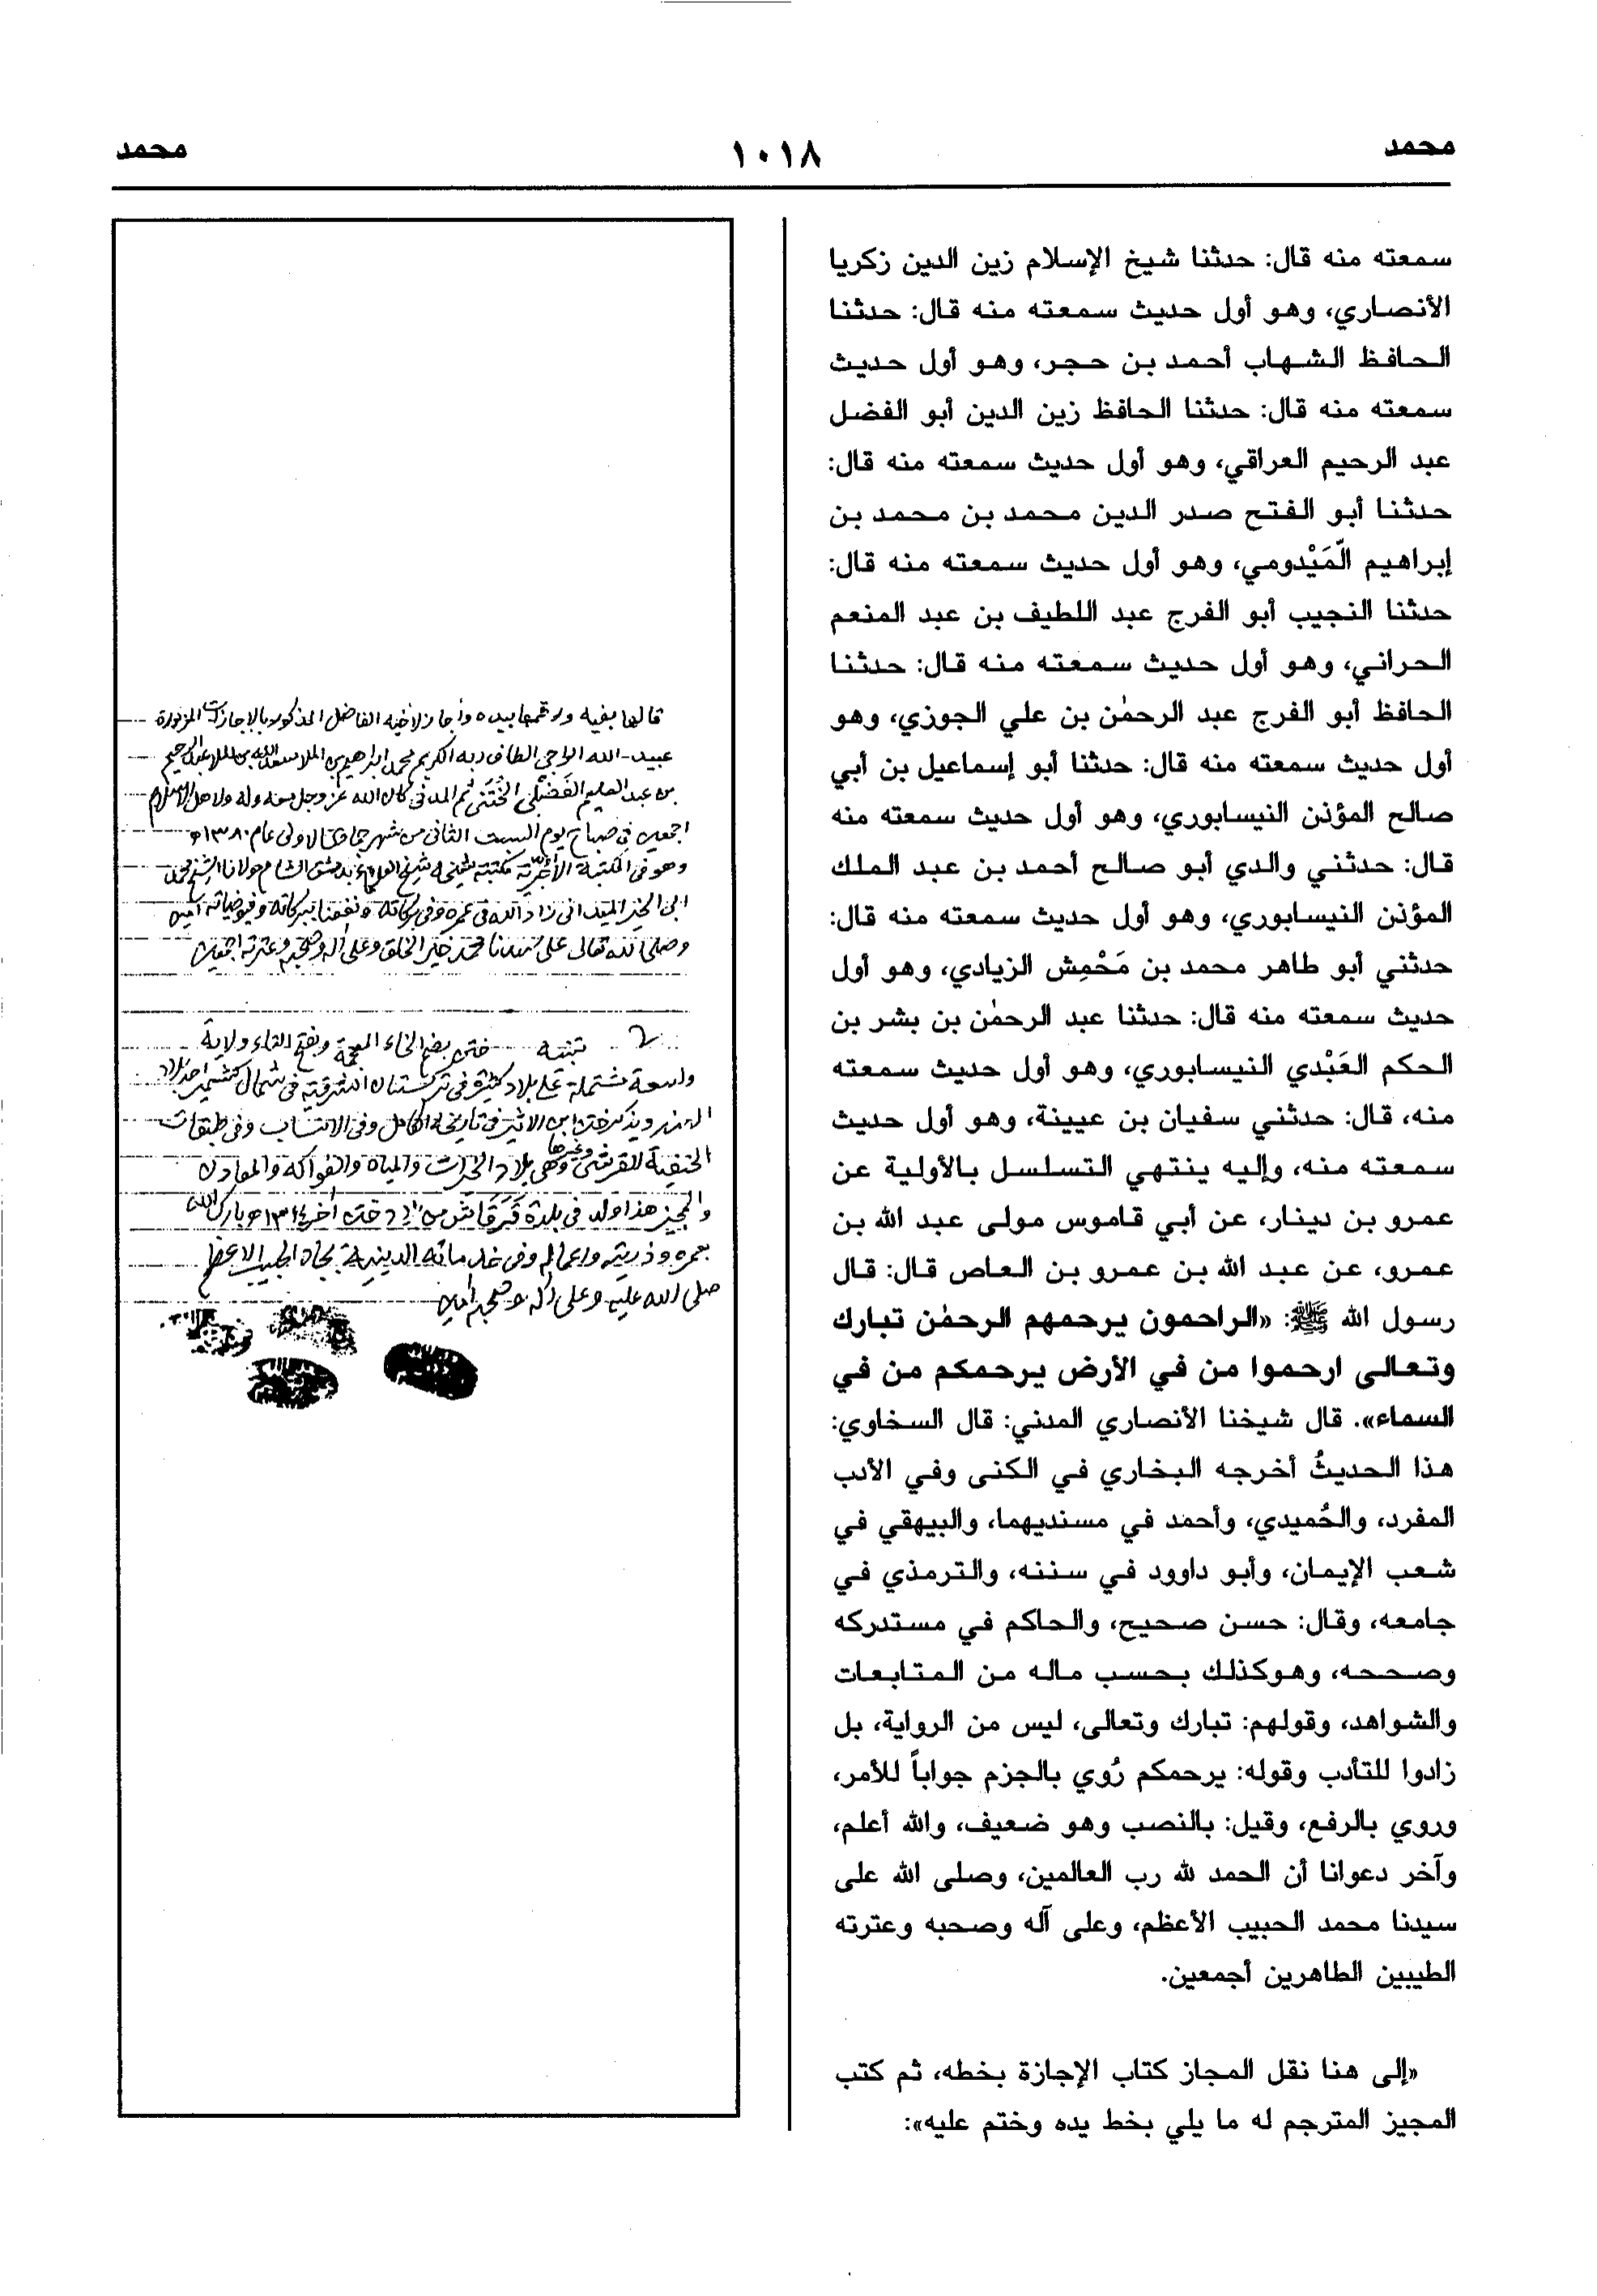 محمد
١٠١٨
محمد
سمعته منه قال: حدثنا شيخ الإسلام زين الدين زكريا
الأنصاري، وهو أول حديث سمعته منه قال: حدثنا
الحافظ الشهاب أحمد بن حجر، وهو أول حديث
سمعته منه قال: حدثنا الحافظ زين الدين أبو الفضل
عبد الرحيم العراقي، وهو أول حديث سمعته منه قال:
حدثنا أبو الفتح صدر الدين محمد بن محمد بن
إبراهيم الّمَيْدومي، وهو أول حديث سمعته منه قال:
حدثنا النجيب أبو الفرج عبد اللطيف بن عبد المنعم
الحراني، وهو أول حديث سمعته منه قال: حدثنا
الحافظ أبو الفرج عبد الرحمٰن بن علي الجوزي، وهو
أول حديث سمعته منه قال: حدثنا أبو إسماعيل بن أبي
صالح المؤذن النيسابوري، وهو أول حديث سمعته منه
قال: حدثني والدي أبو صالح أحمد بن عبد الملك
المؤذن النيسابوري، وهو أول حديث سمعته منه قال:
حدثني أبو طاهر محمد بن مَحْمِش الزيادي، وهو أول
حديث سمعته منه قال: حدثنا عبد الرحمٰن بن بشر بن
الحكم العَبْدي النيسابوري، وهو أول حديث سمعته
منه، قال: حدثني سفيان بن عيينة، وهو أول حديث
سمعته منه، وإليه ينتهي التسلسل بالأولية عن
عمرو بن دينار، عن أبي قاموس مولى عبد الله بن
عمرو، عن عبد الله بن عمرو بن العاص قال: قال
رسول الله ﷺ: «الراحمون يرحمهم الرحمٰن تبارك
وتعالى ارحموا من في الأرض يرحمكم من في
السماء». قال شيخنا الأنصاري المدني: قال السخاوي:
هذا الحديثُ أخرجه البخاري في الكنى وفي الأدب
المفرد، والحُميدي، وأحمد في مسنديهما، والبيهقي في
شعب الإيمان، وأبو داوود في سننه، والترمذي في
جامعه، وقال: حسن صحيح، والحاكم في مستدركه
وصححه، وهوكذلك بحسب ماله من المتابعات
والشواهد، وقولهم: تبارك وتعالى، ليس من الرواية، بل
زادوا للتأدب وقوله: يرحمكم رُوي بالجزم جواباً للأمر،
وروي بالرفع، وقيل: بالنصب وهو ضعيف، والله أعلم،
وآخر دعوانا أن الحمد لله رب العالمين، وصلى الله على
سيدنا محمد الحبيب الأعظم، وعلى آله وصحبه وعترته
الطيبين الطاهرين أجمعين.
«إلى هنا نقل المجاز كتاب الإجازة بخطه، ثم كتب
المجيز المترجم له ما يلي بخط يده وختم عليه»:
قالها بفيه ورقمها بيده وأجاز لأخيه الفاضل المذكور بالإجازات المزبورة
عبيد الله الراجي الطاف ربه الكريم محمد ابراهيم بن الملا سعد الله بن الملا عبد الرحيم
بن عبد العليم الفَضْلي الخُتَني ثم المدني كان الله عز وجل معه وله ولاهل الاسلام
اجمعين في صباح يوم السبت الثاني من شهر جمادى الاولى عام ١٣٨٠ه
وهو في المكتبة مكتبة شيخ العلماء بدمشق الشام مولانا الشيخ محمد
ابي الخير الميداني زاد الله في عمره وفي بركاته ونفعنا ببركاته وفيوضاته آمين
وصلى الله تعالى على سيدنا محمد خير الخلق وعلى آله وصحبه وعترته اجمعين
تنبيه ختن بضم الخاء المعجمة وبفتح التاء ولاية
واسعة مشتملة على بلاد كثيرة في تركستان الشرقية في شمال كشمير احد بلاد
الهند ويذكر ختن ابن الاثير في تاريخه الكامل وفي الانساب وفي طبقات
الحنفية للقرشي وغيرها وهي بلاد الخيرات والمياه والفواكه والمعادن
والمجيز هذا ولد في بلدة قَرَقَاش من بلاد ختن آخر ١٣١٤ه بارك الله
بعمره وذريته واعماله وفي خدماته الدينية بجاه الحبيب الاعظم
صلى الله عليه وعلى آله وصحبه آمين